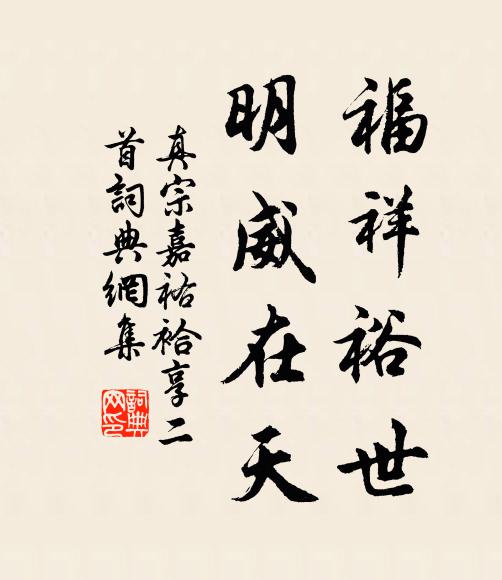 福祥裕世
明威在天
真宗嘉祐祫享二
首詞典網集
詞典
网印